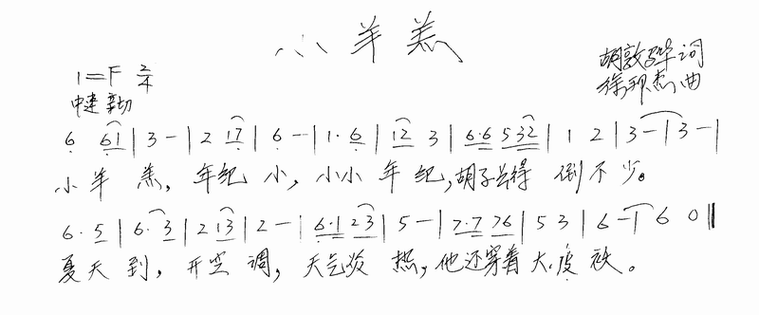 小羊羔
1=F 2/4
胡敦骅 词
中速
曲
6 61 | 3 - | 2 17 | 6 - | 1·6 | 12 3 | 6·6 532 | 1 2 | 3 - | 3 - |
小羊羔，年纪小，小小年纪，胡子长得倒不少。
6·5 | 6·3 | 2 13 | 2 - | 6·1 23 | 5 - | 7·7 76 | 5 3 | 6 - | 6 0 ‖
夏天到，开空调，天气炎热，他还穿着大皮袄。